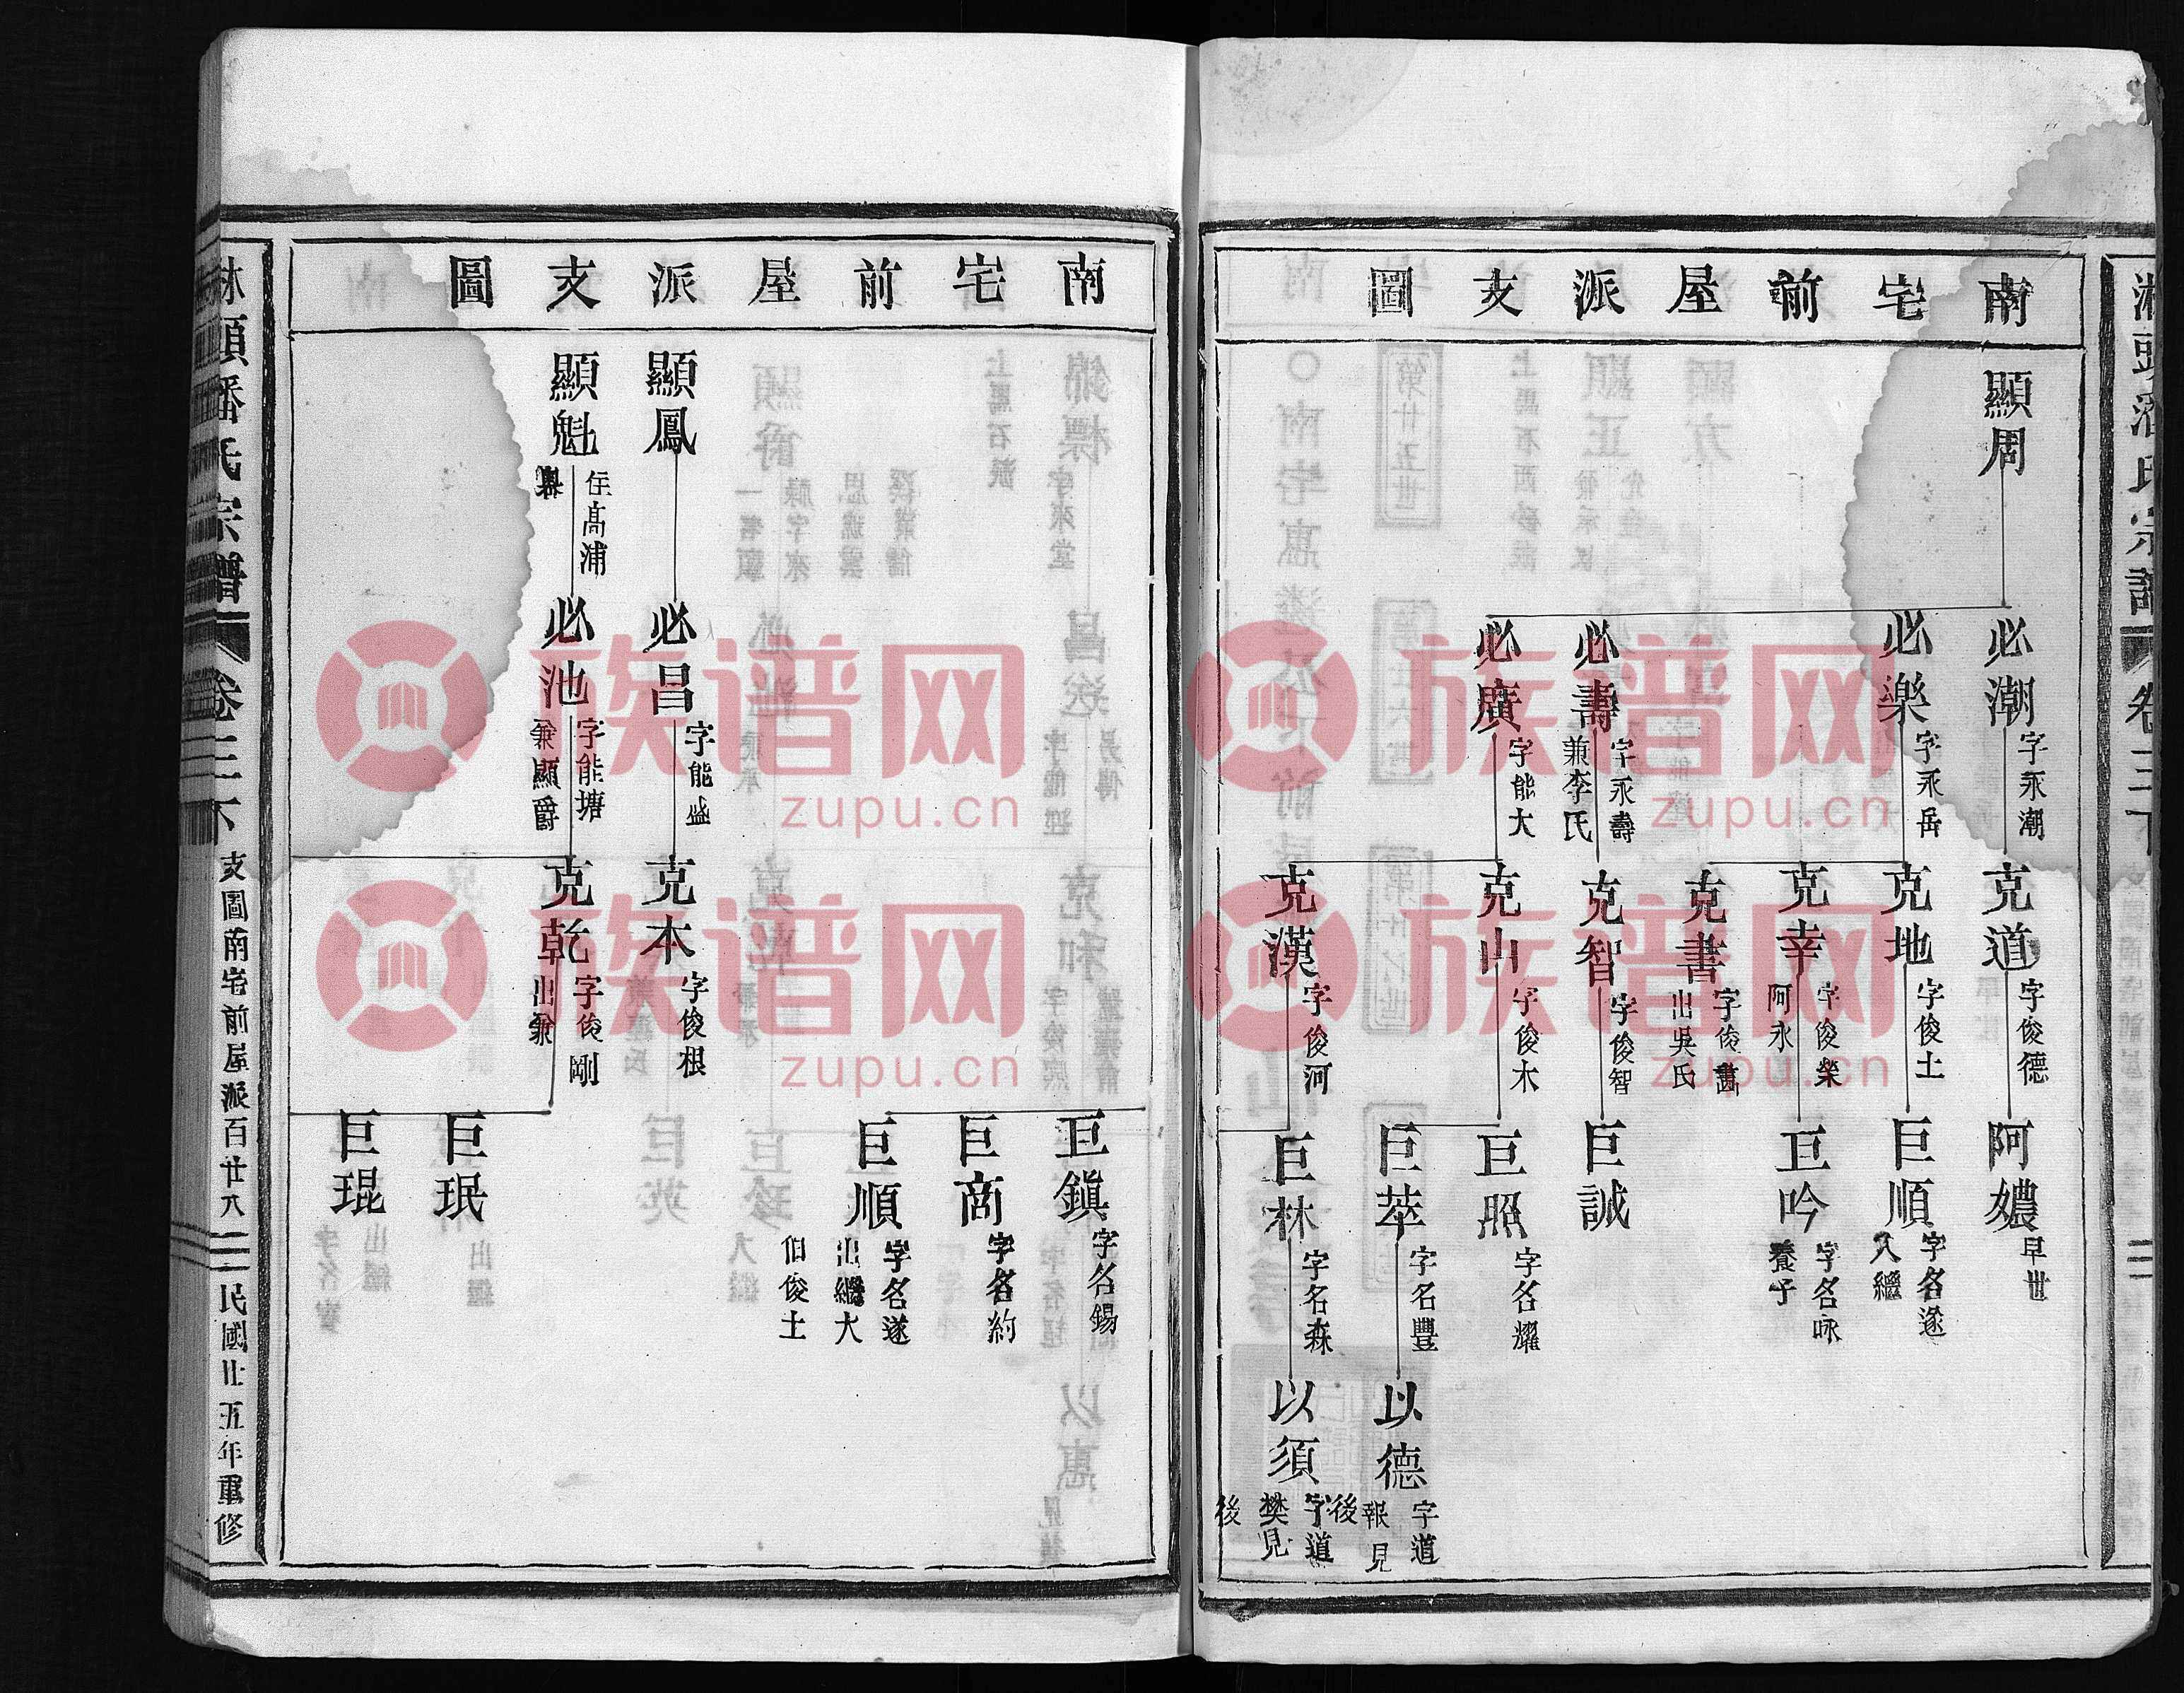 南宅前屋派支圖
顯周
必潮 字永潮
必樂 字永岳
必壽 字永壽 兼李氏
必廣 字能大
克道 字俊德
克地 字俊土
克幸 字俊榮 阿永
克書 字俊畵 出吳氏
克智 字俊智
克山 字俊木
克漢 字俊河
阿孃 早世
巨順 字名遂 入繼
巨吟 字名咏 養子
巨誠
巨照 字名耀
巨萃 字名豐
巨林 字名森
以德 字道報見後
以須 字道樊見後
潘氏宗譜 卷三下
南宅前屋派支圖
顯鳳
顯魁 住高浦
必昌 字能盛
必池 字能塘 兼顯爵
克本 字俊根
克乾 字俊剛 出兼
巨鎭 字名錫
巨商 字名約
巨順 字名遂 出繼大伯俊土
巨珉
巨琨
潘氏宗譜 卷三下 支圖南宅前屋派百廿八 民國廿五年重修
族谱网
zupu.cn
族谱网
zupu.cn
族谱网
zupu.cn
族谱网
zupu.cn